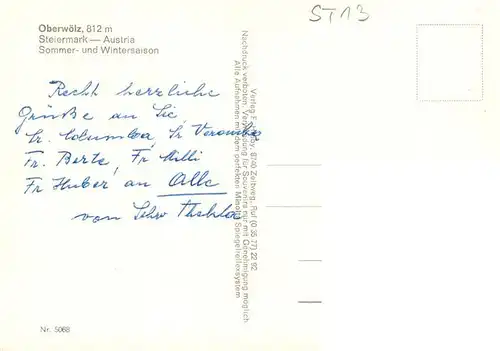 Oberwölz, 812 m
Steiermark — Austria
Sommer- und Wintersaison
ST 13
Recht herzliche
Grüße an Sie,
Sr. Columba, Sr Veronika
Fr. Berta, Fr Milli
Fr Huber, an Alle
von Schw Thekla
8740 Zeltweg, Ruf (0 35 77) 22 92
Nachdruck verboten. Verwendung für Souvenirs nur mit Genehmigung möglich
Alle Aufnahmen mit dem perfekten Spiegelreflexsystem
Nr. 5068